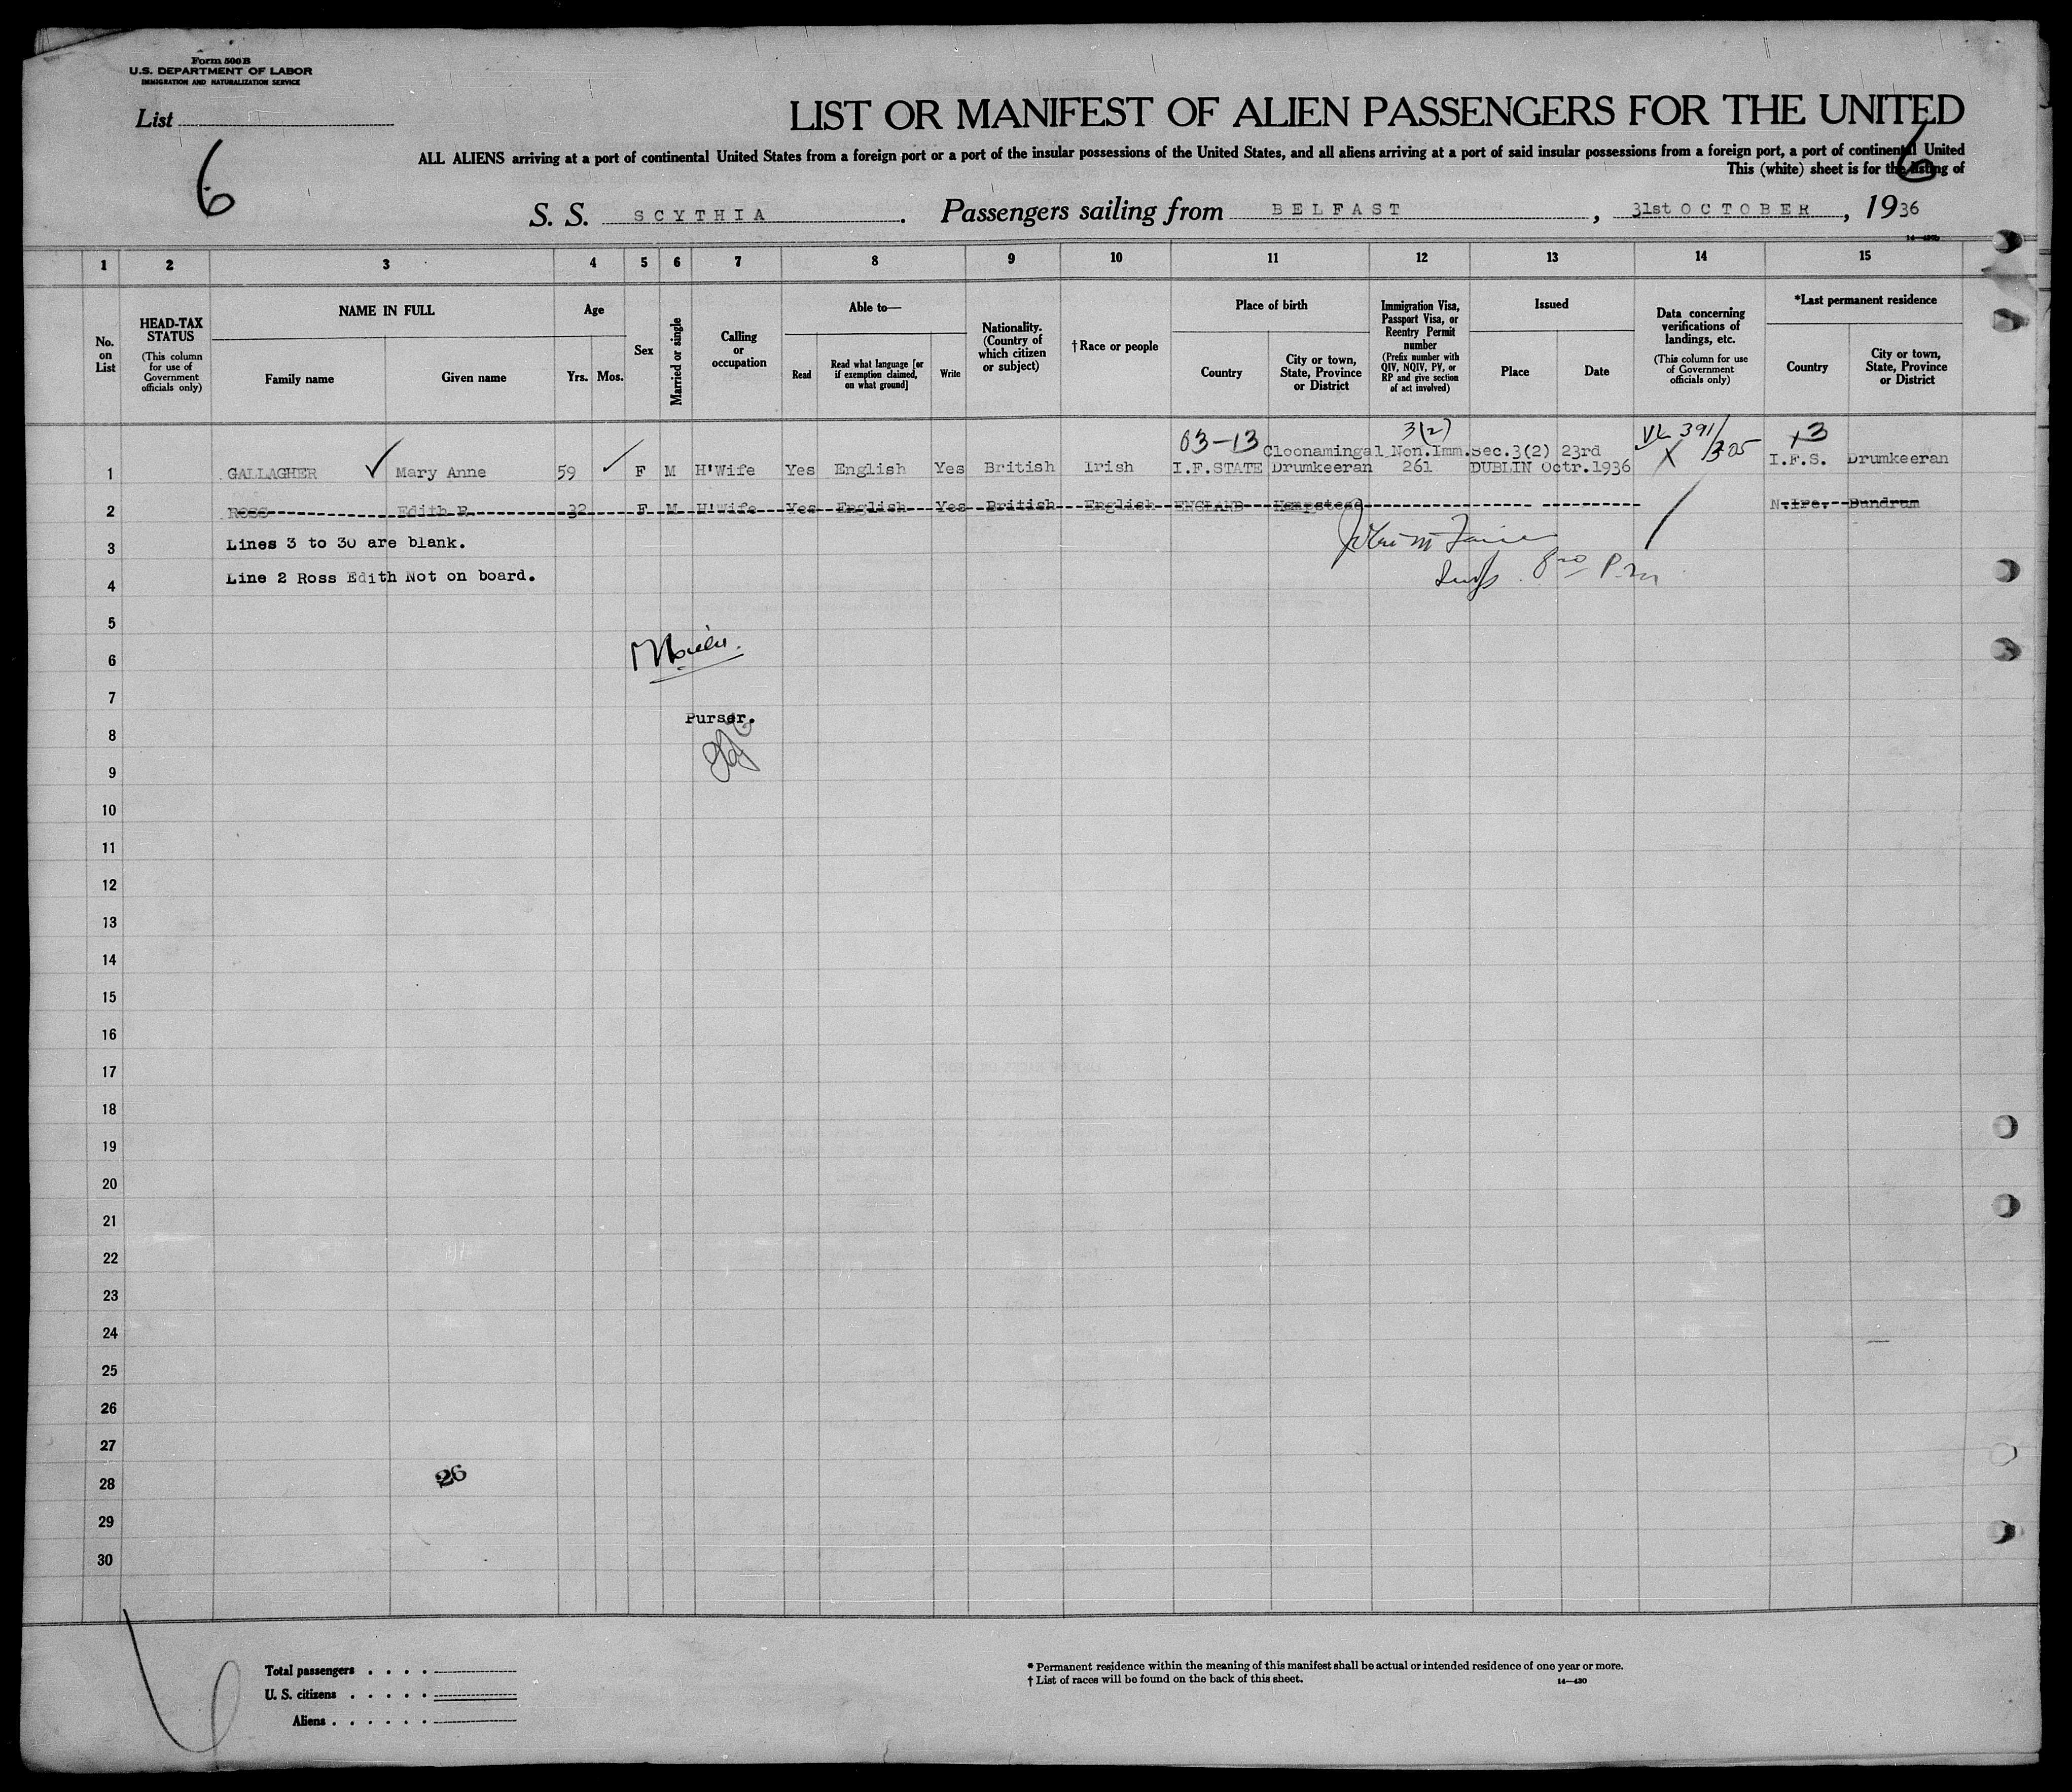 Form 500B
U.S. DEPARTMENT OF LABOR
IMMIGRATION AND NATURALIZATION SERVICE
List
6
LIST OR MANIFEST OF ALIEN PASSENGERS FOR THE UNITED
ALL ALIENS arriving at a port of continental United States from a foreign port or a port of the insular possessions of the United States, and all aliens arriving at a port of said insular possessions from a foreign port, a port of continental United
This (white) sheet is for the listing of
6
S. S. SCYTHIA. Passengers sailing from BELFAST, 31st OCTOBER, 1936
1 2 3 4 5 6 7 8 9 10 11 12 13 14 15
No. on List
HEAD-TAX STATUS (This column for use of Government officials only)
NAME IN FULL
Family name Given name
Age
Yrs. Mos.
Sex
Married or single
Calling or occupation
Able to—
Read
Read what language [or if exemption claimed, on what ground]
Write
Nationality. (Country of which citizen or subject)
†Race or people
Place of birth
Country
City or town, State, Province or District
Immigration Visa, Passport Visa, or Reentry Permit number (Prefix number with QIV, NQIV, PV, or RP and give section of act involved)
Issued
Place Date
Data concerning verifications of landings, etc. (This column for use of Government officials only)
*Last permanent residence
Country
City or town, State, Province or District
03-13 3(2) 391/
Cloonamingal Non.Imm.Sec.3(2) 23rd X 305 3
1 GALLAGHER Mary Anne 59 F M H'Wife Yes English Yes British Irish I.F.STATE Drumkeeran 261 DUBLIN Octr.1936 I.F.S. Drumkeeran
2 ROSS Edith R 32 F M H'Wife Yes English Yes British English ENGLAND Hempstead N.Ire. Dundrum
3 Lines 3 to 30 are blank.
4 Line 2 Ross Edith Not on board.
5
6
7
Purser.
8
9
10
11
12
13
14
15
16
17
18
19
20
21
22
23
24
25
26
27
26
28
29
30
Total passengers . . . .
U. S. citizens . . . . .
Aliens . . . . . .
* Permanent residence within the meaning of this manifest shall be actual or intended residence of one year or more.
† List of races will be found on the back of this sheet.
14—430